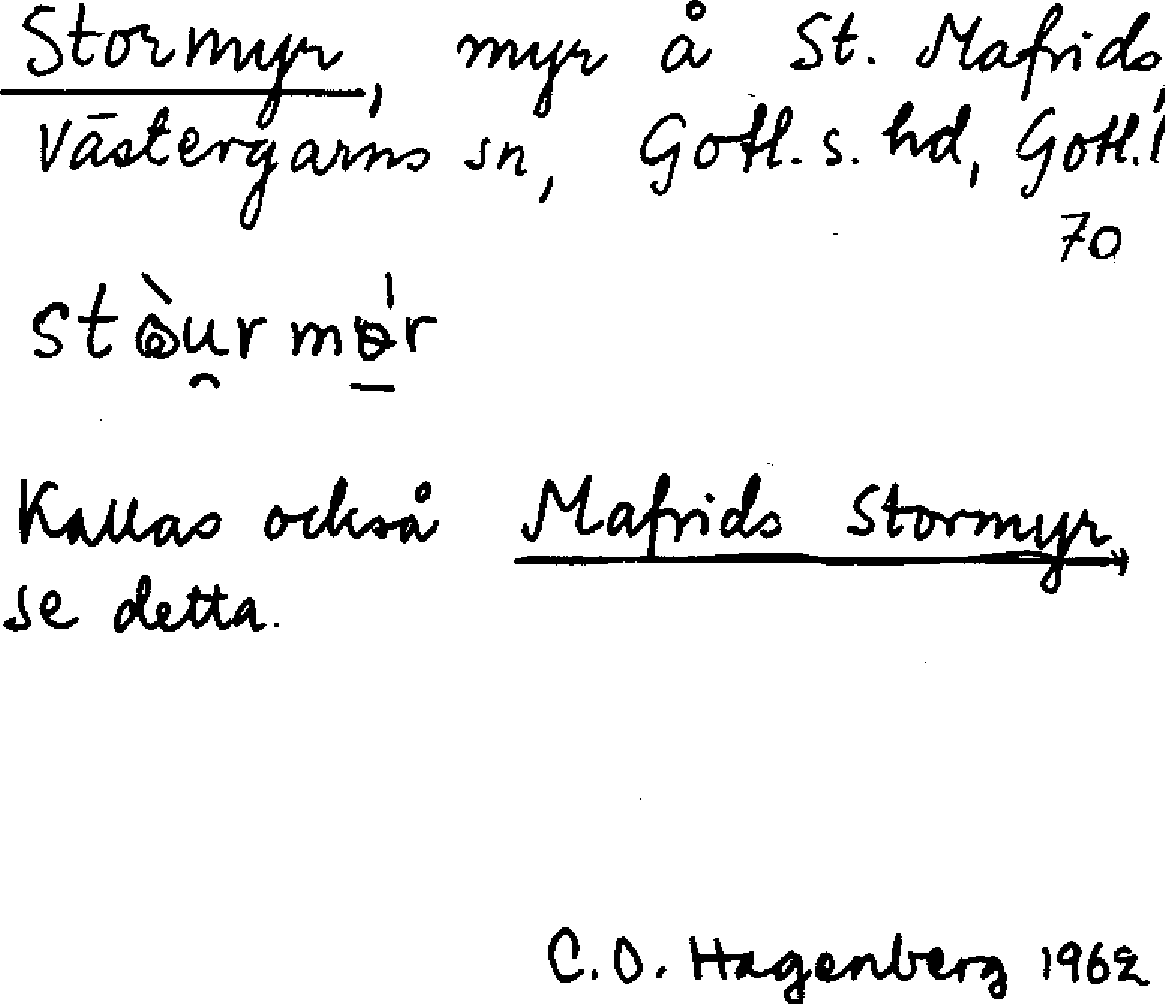 Stormyr, myr å St. Mafrids,
Västergarns sn, Gotl. s. hd, Gotl. l
70
Kallas också Mafrids Stormyr,
se detta.
C.O. Hagenberg 1962